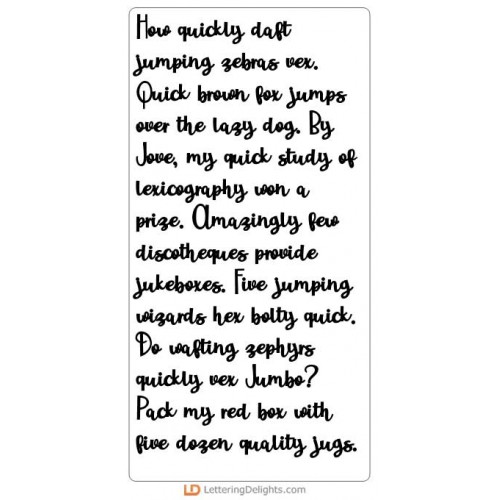 How quickly daft
jumping zebras vex.
Quick brown fox jumps
over the lazy dog. By
Jove, my quick study of
lexicography won a
prize. Amazingly few
discotheques provide
jukeboxes. Five jumping
wizards hex bolty quick.
Do wafting zephyrs
quickly vex Jumbo?
Pack my red box with
five dozen quality jugs.
LD LetteringDelights.com